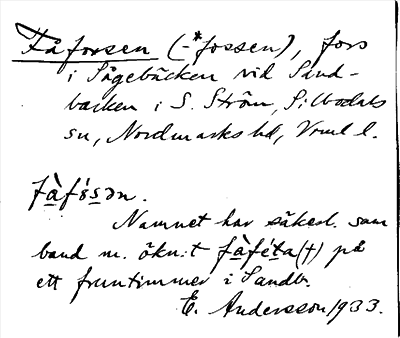 Fåforsen (-*fossen), fors
i Sågebäcken vid Sand-
backen i S. Ström, Silbodals
sn, Nordmarks hd, Vrml l.
få̀fósən.
Namnet har säkerl. sam
band m. ökn:t fåféta (†) på
ett fruntimmer i Sandb.
E. Andersson 1933.